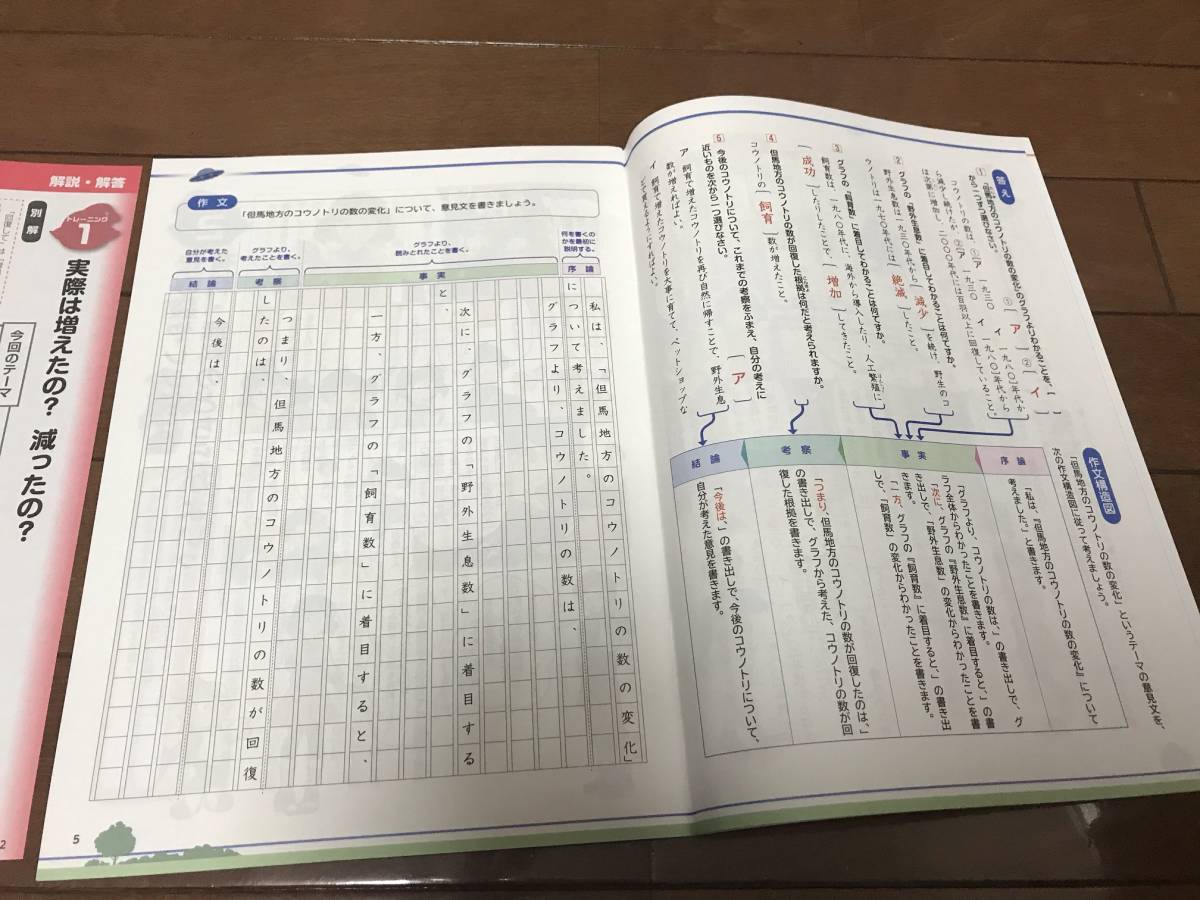 答え
1 「但馬地方のコウノトリの数の変化」のグラフよりわかることを、( )
から一つずつ選びなさい。 ①〔 ア 〕 ②〔 イ 〕
コウノトリの数は、①〔ア 一九三〇 イ 一九八〇〕年代か
ら減少し続けたが、②〔ア 一九三〇 イ 一九八〇〕年代から
は次第に増加し、二〇〇〇年代には百羽以上に回復していること。
2 グラフの「野外生息数」に着目してわかることは何ですか。
野外生息数は一九三〇年代から〔 減少 〕を続け、野生のコ
ウノトリは一九七〇年代には〔 絶滅 〕したこと。
3 グラフの「飼育数」に着目してわかることは何ですか。
飼育数は、一九八〇年代に、海外から導入したり、人工繁殖に
〔 成功 〕したりしたことで、〔 増加 〕してきたこと。
4 但馬地方のコウノトリの数が回復した根拠は何だと考えられますか。
コウノトリの〔 飼育 〕数が増えたこと。
5 今後のコウノトリについて、これまでの考察をふまえ、自分の考えに
近いものを次から一つ選びなさい。 〔 ア 〕
ア 飼育で増えたコウノトリを再び自然に帰すことで、野外生息
数が増えればよい。
イ 飼育で増えたコウノトリを大事に育てて、ペットショップな
どで買えるようにすればよい。
作文構造図
「但馬地方のコウノトリの数の変化」というテーマの意見文を、
次の作文構造図に従って考えましょう。
序論
「私は、『但馬地方のコウノトリの数の変化』について
考えました。」と書きます。
事実
「グラフより、コウノトリの数は、」の書き出しで、グ
ラフ全体からわかったことを書きます。
「次に、グラフの『野外生息数』に着目すると、」の書
き出しで、「野外生息数」の変化からわかったことを書
きます。
「一方、グラフの『飼育数』に着目すると、」の書き出
しで、「飼育数」の変化からわかったことを書きます。
考察
「つまり、但馬地方のコウノトリの数が回復したのは、」
の書き出しで、グラフから考えた、コウノトリの数が回
復した根拠を書きます。
結論
「今後は、」の書き出しで、今後のコウノトリについて、
自分が考えた意見を書きます。
作文
「但馬地方のコウノトリの数の変化」について、意見文を書きましょう。
何を書くの
かを最初に
説明する。
序論
グラフより、
読みとれたことを書く。
事実
グラフより、
考えたことを書く。
考察
自分が考えた
意見を書く。
結論
私は、「但馬地方のコウノトリの数の変化」
について考えました。
グラフより、コウノトリの数は、
次に、グラフの「野外生息数」に着目する
と、
一方、グラフの「飼育数」に着目すると、
つまり、但馬地方のコウノトリの数が回復
したのは、
今後は、
5
解説・解答
トレーニング
1
別解
実際は増えたの? 減ったの?
今回のテーマ
2